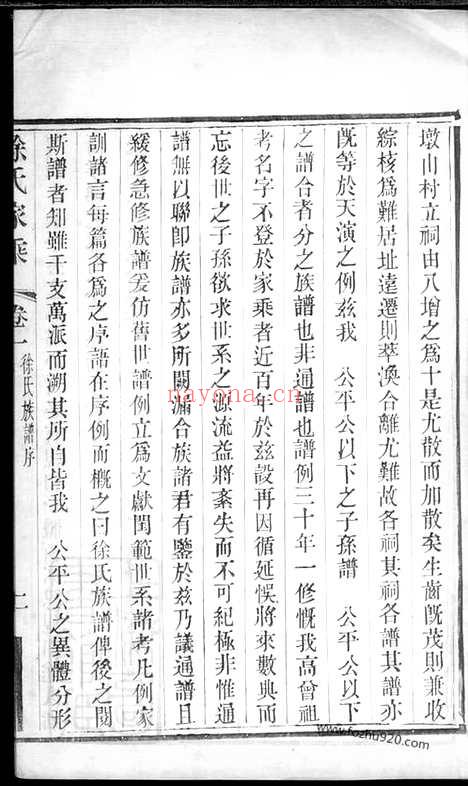 墩山村立祠由八增之爲十是尤散而加散矣生齒旣茂則兼收
綜核爲難居址遠遷則萃渙合離尤難故各祠其祠各譜其譜亦
旣等於天演之例玆我 公平公以下之子孫譜 公平公以下
之譜合者分之族譜也非通譜也譜例三十年一修慨我高曾祖
考名字不登於家乘者近百年於玆設再因循延悞將來數典而
忘後世之子孫欲求世系之源流益將紊失而不可紀極非惟通
譜無以聯卽族譜亦多所闕漏合族諸君有鑒於玆乃議通譜且
緩修急修族譜爰仿舊世譜例立爲文獻閫範世系諸考凡例家
訓諸言每篇各爲之序語在序例而概之曰徐氏族譜俾後之閱
斯譜者知雖千支萬派而溯其所自皆我 公平公之異體分形
徐氏家乘 卷一 徐氏族譜序
nayona.cn
www.fozhu920.com